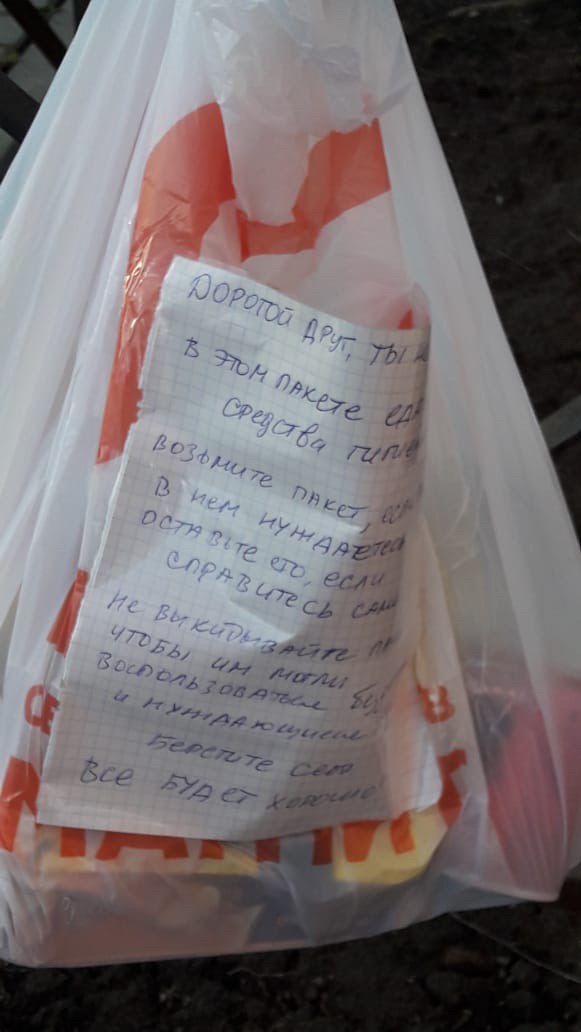 ДОРОГОЙ ДРУГ, ТЫ
В ЭТОМ ПАКЕТЕ ЕДА
СРЕДСТВА ГИГИЕН
ВОЗЬМИТЕ ПАКЕТ, ЕСЛИ
В НЕМ НУЖДАЕТЕСЬ
ОСТАВЬТЕ ЕГО, ЕСЛИ
СПРАВИТЕСЬ САМИ
НЕ ВЫКИДЫВАЙТЕ
ЧТОБЫ ИМ МОГЛИ
ВОСПОЛЬЗОВАТЬСЯ
И НУЖДАЮЩИЕСЯ
БЕРЕГИТЕ СЕБЯ
ВСЕ БУДЕТ ХОРОШО!